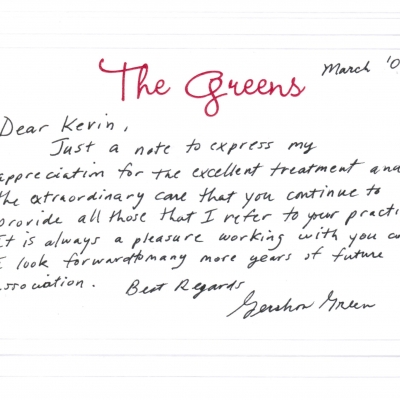 The Greens
March '0
Dear Kevin,
Just a note to express my
appreciation for the excellent treatment and
the extraordinary care that you continue to
provide all those that I refer to your practi
It is always a pleasure working with you an
I look forward to many more years of future
association. Best Regards
Gershon Green